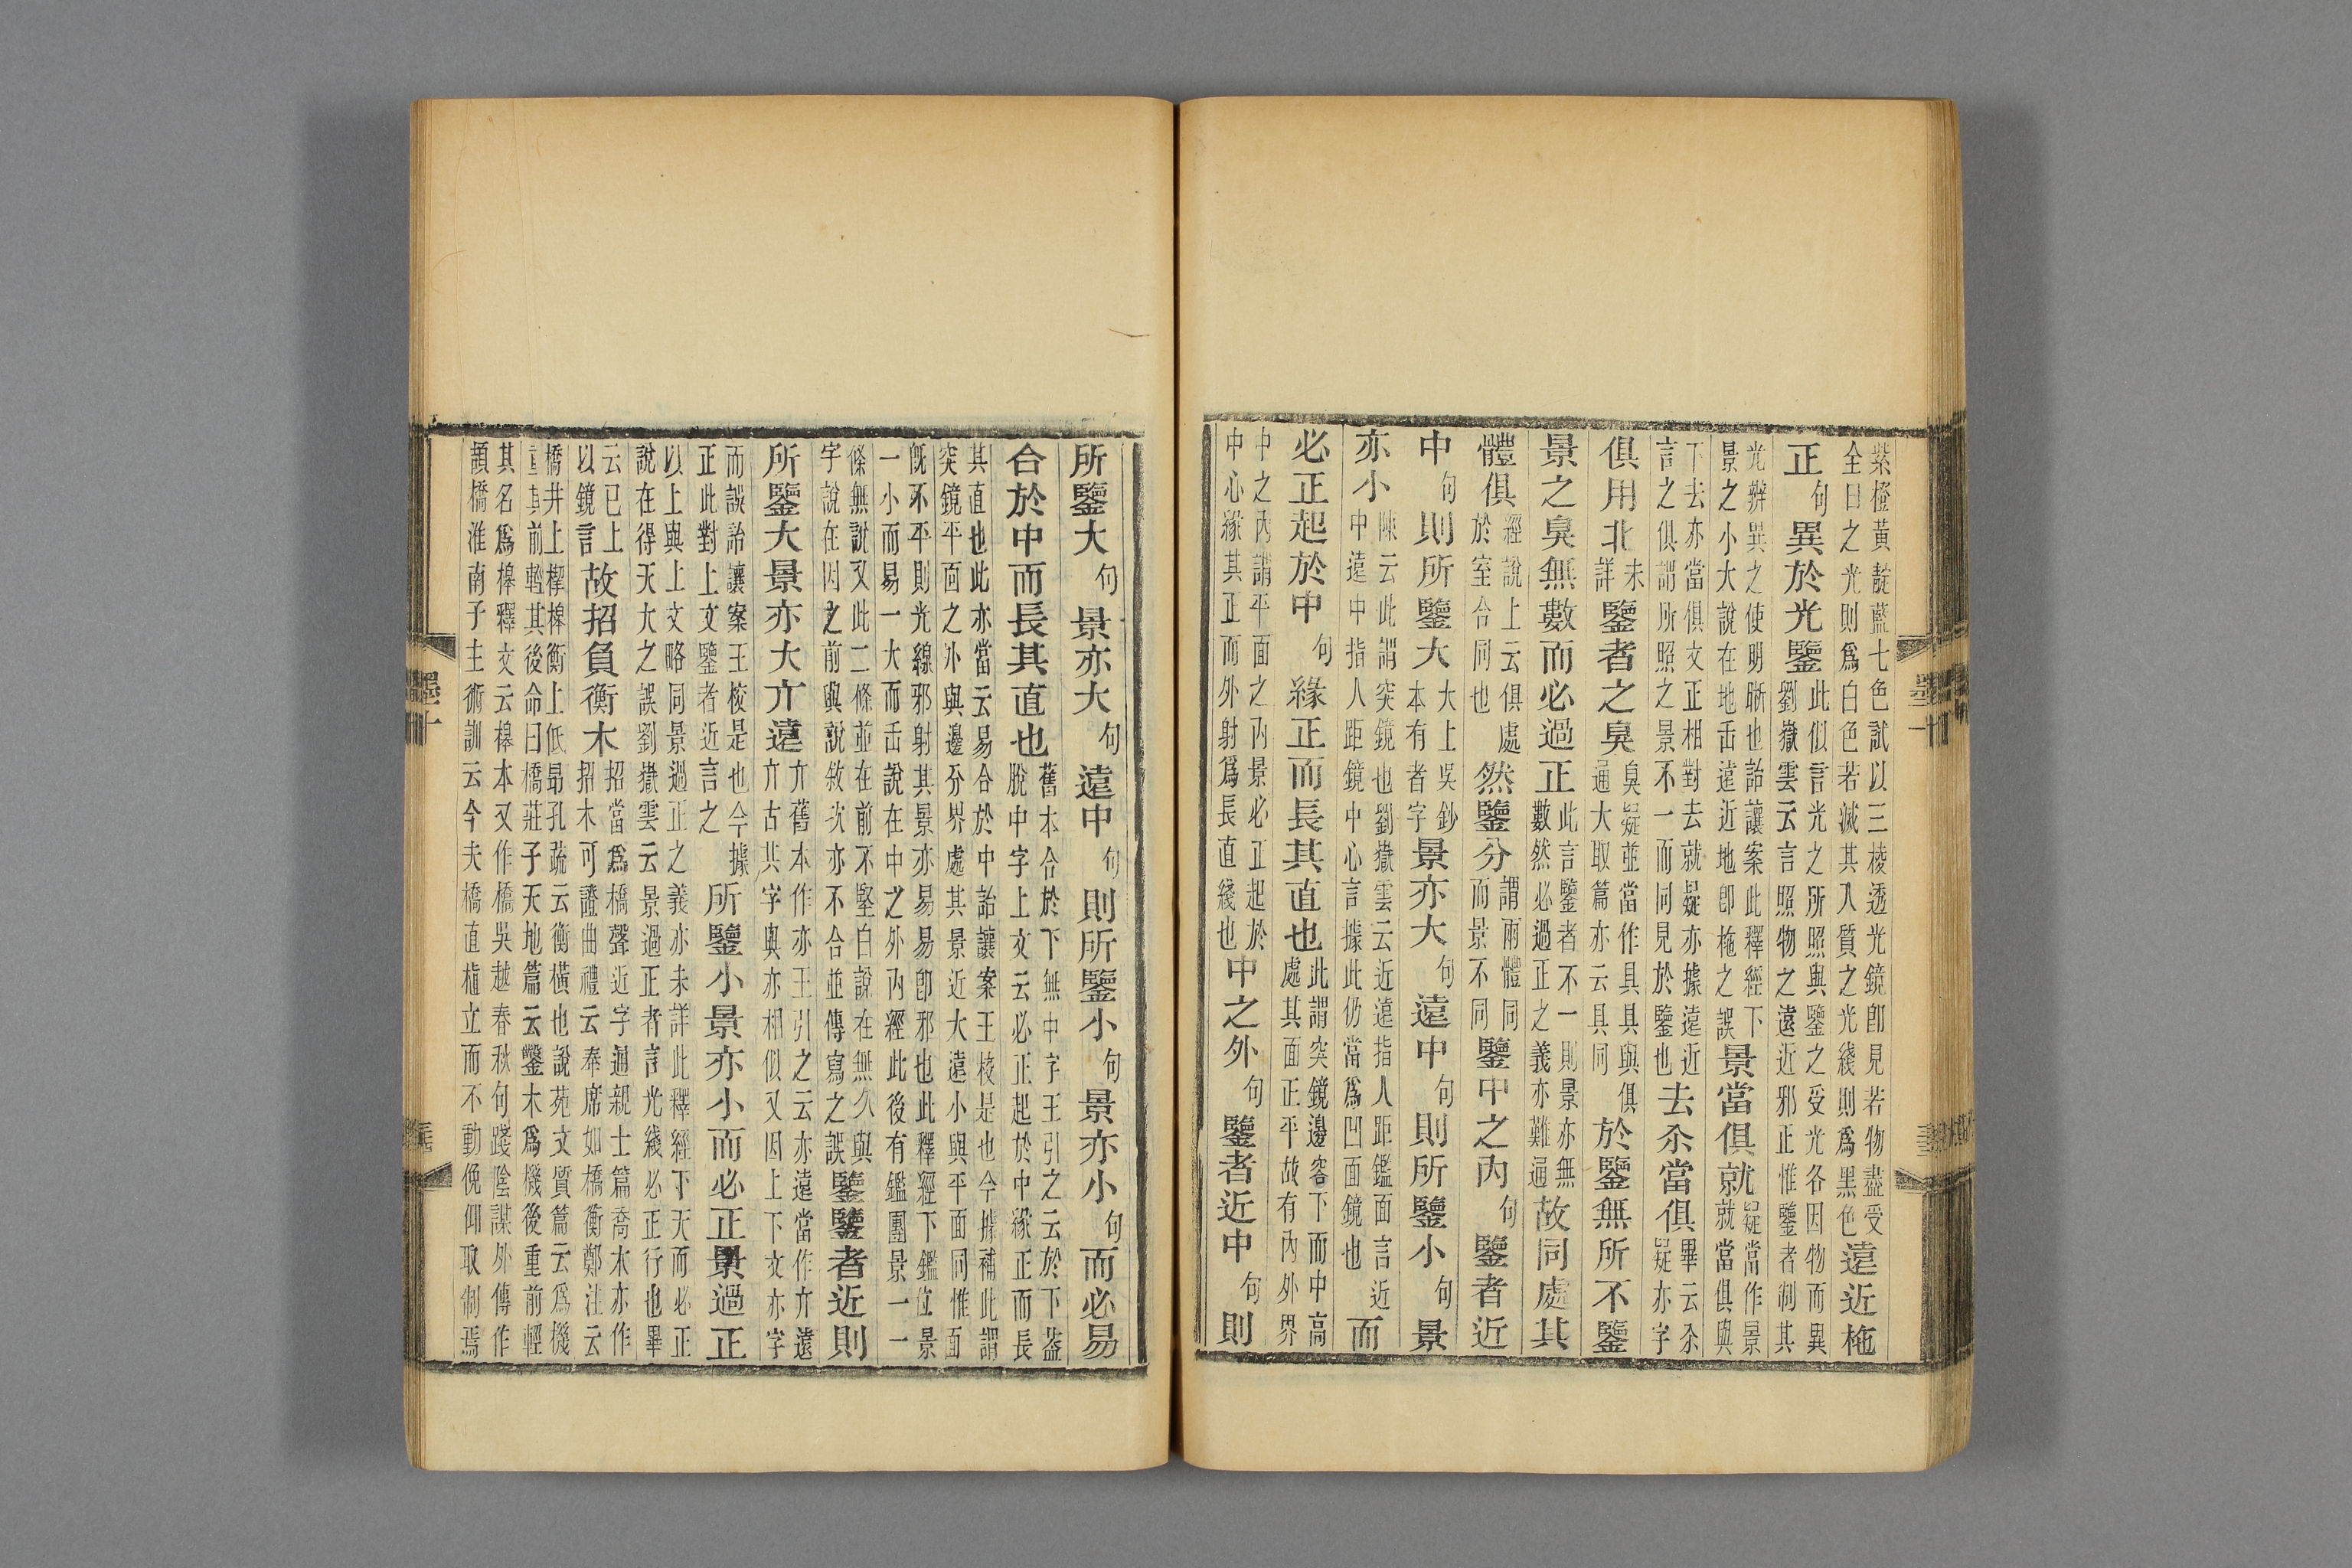 紫橙黃靛藍七色試以三棱透光鏡卽見若物盡受
全日之光則爲白色若滅其入質之光綫則爲黑色遠近柂
正句異於光鑒此似言光之所照與鑒之受光各因物而異
劉嶽雲云言照物之遠近邪正惟鑒者制其
光辨異之使明晰也詒讓案此釋經下
景之小大說在地缶遠近地卽柂之誤景當俱就疑當作景
就當俱與
下去亦當俱文正相對去就疑亦據遠近
言之俱謂所照之景不一而同見於鑒也去尒當俱畢云尒
疑亦字
俱用北未
詳鑒者之臭臭疑並當作具具與俱
通大取篇亦云具同於鑒無所不鑒
景之臭無數而必過正此言鑒者不一則景亦無
數然必過正之義亦難通故同處其
體俱經說上云俱處
於室合同也然鑒分謂兩體同
而景不同鑒中之內句鑒者近
中句則所鑒大大上吳鈔
本有者字景亦大句遠中句則所鑒小句景
亦小陳云此謂突鏡也劉嶽雲云近遠指人距鑑面言近
中遠中指人距鏡中心言據此仍當爲凹面鏡也而
必正起於中句緣正而長其直也此謂突鏡邊容下而中高
處其面正平故有內外界
中之內謂平面之內景必正起於
中心緣其正而外射爲長直綫也中之外句鑒者近中句則
所鑒大句景亦大句遠中句則所鑒小句景亦小句而必易
合於中而長其直也舊本合於下無中字王引之云於下葢
脫中字上文云必正起於中緣正而長
其直也此亦當云易合於中詒讓案王校是也今據補此謂
突鏡平面之外與邊分界處其景近大遠小與平面同惟面
旣不平則光線邪射其景亦易易卽邪也此釋經下鑑位景
一小而易一大而缶說在中之外內經此後有鑑團景一一
條無說又此二條並在前不堅白說在無久與
字說在因之前與說敘次亦不合並傳寫之誤鑒鑒者近則
所鑒大景亦大亣遠亣舊本作亦王引之云亦遠當作亣遠
亣古其字與亦相似又因上下文亦字
而誤詒讓案王校是也今據
正此對上文鑒者近言之所鑒小景亦小而必正景過正
以上與上文略同景過正之義亦未詳此釋經下天而必正
說在得天大之誤劉嶽雲云景過正者言光綫必正行也畢
云已上
以鏡言故招負衡木招當爲橋聲近字通親士篇喬木亦作
招木可證曲禮云奉席如橋衡鄭注云
橋井上㮮橰衡上低昂孔疏云衡橫也說苑文質篇云爲機
重其前輕其後命曰橋莊子天地篇云鑿木爲機後重前輕
其名爲橰釋文云橰本又作橋吳越春秋句踐陰謀外傳作
頡橋淮南子主術訓云今夫橋直植立而不動俛仰取制焉
墨十